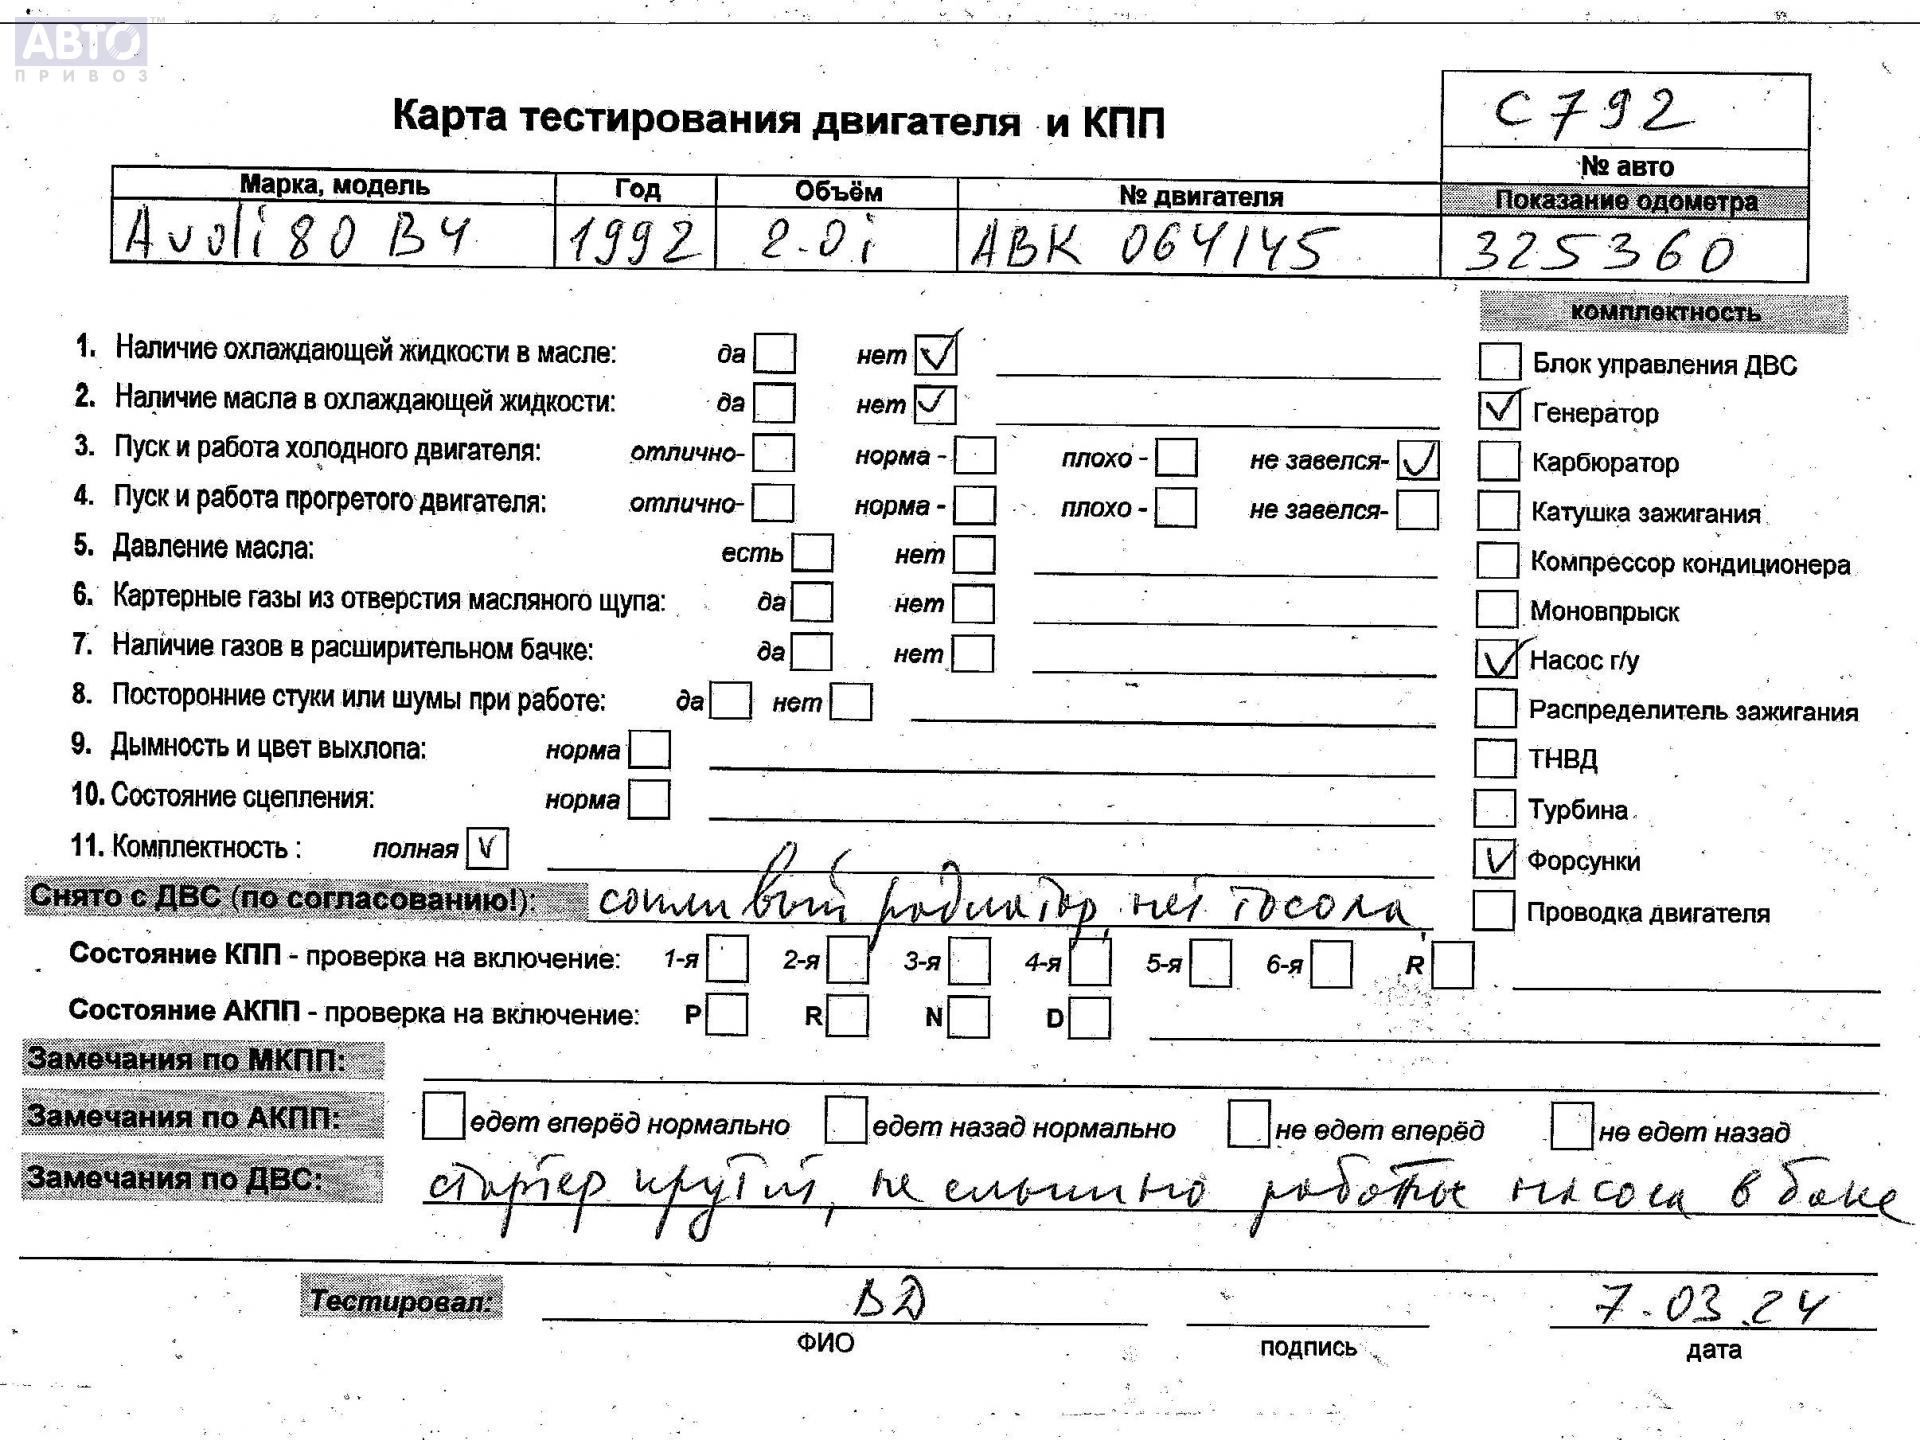 АВТО™
ПРИВОЗ
Карта тестирования двигателя и КПП
С792
№ авто
Марка, модель Год Объём № двигателя Показание одометра
Audi 80 B4 1992 2.0i ABK 064145 325360
комплектность
1. Наличие охлаждающей жидкости в масле: да нет
2. Наличие масла в охлаждающей жидкости: да нет
3. Пуск и работа холодного двигателя: отлично- норма - плохо - не завелся-
4. Пуск и работа прогретого двигателя: отлично- норма - плохо - не завелся-
5. Давление масла: есть нет
6. Картерные газы из отверстия масляного щупа: да нет
7. Наличие газов в расширительном бачке: да нет
8. Посторонние стуки или шумы при работе: да нет
9. Дымность и цвет выхлопа: норма
10. Состояние сцепления: норма
11. Комплектность : полная
Блок управления ДВС
Генератор
Карбюратор
Катушка зажигания
Компрессор кондиционера
Моновпрыск
Насос г/у
Распределитель зажигания
ТНВД
Турбина
Форсунки
Проводка двигателя
Снято с ДВС (по согласованию!): радиатор, нет тосола
Состояние КПП - проверка на включение: 1-я 2-я 3-я 4-я 5-я 6-я R
Состояние АКПП - проверка на включение: P R N D
Замечания по МКПП:
Замечания по АКПП: едет вперёд нормально едет назад нормально не едет вперёд не едет назад
Замечания по ДВС: стартер крутит, не слышно работы насоса в баке
Тестировал: ВД 7.03.24
ФИО подпись дата